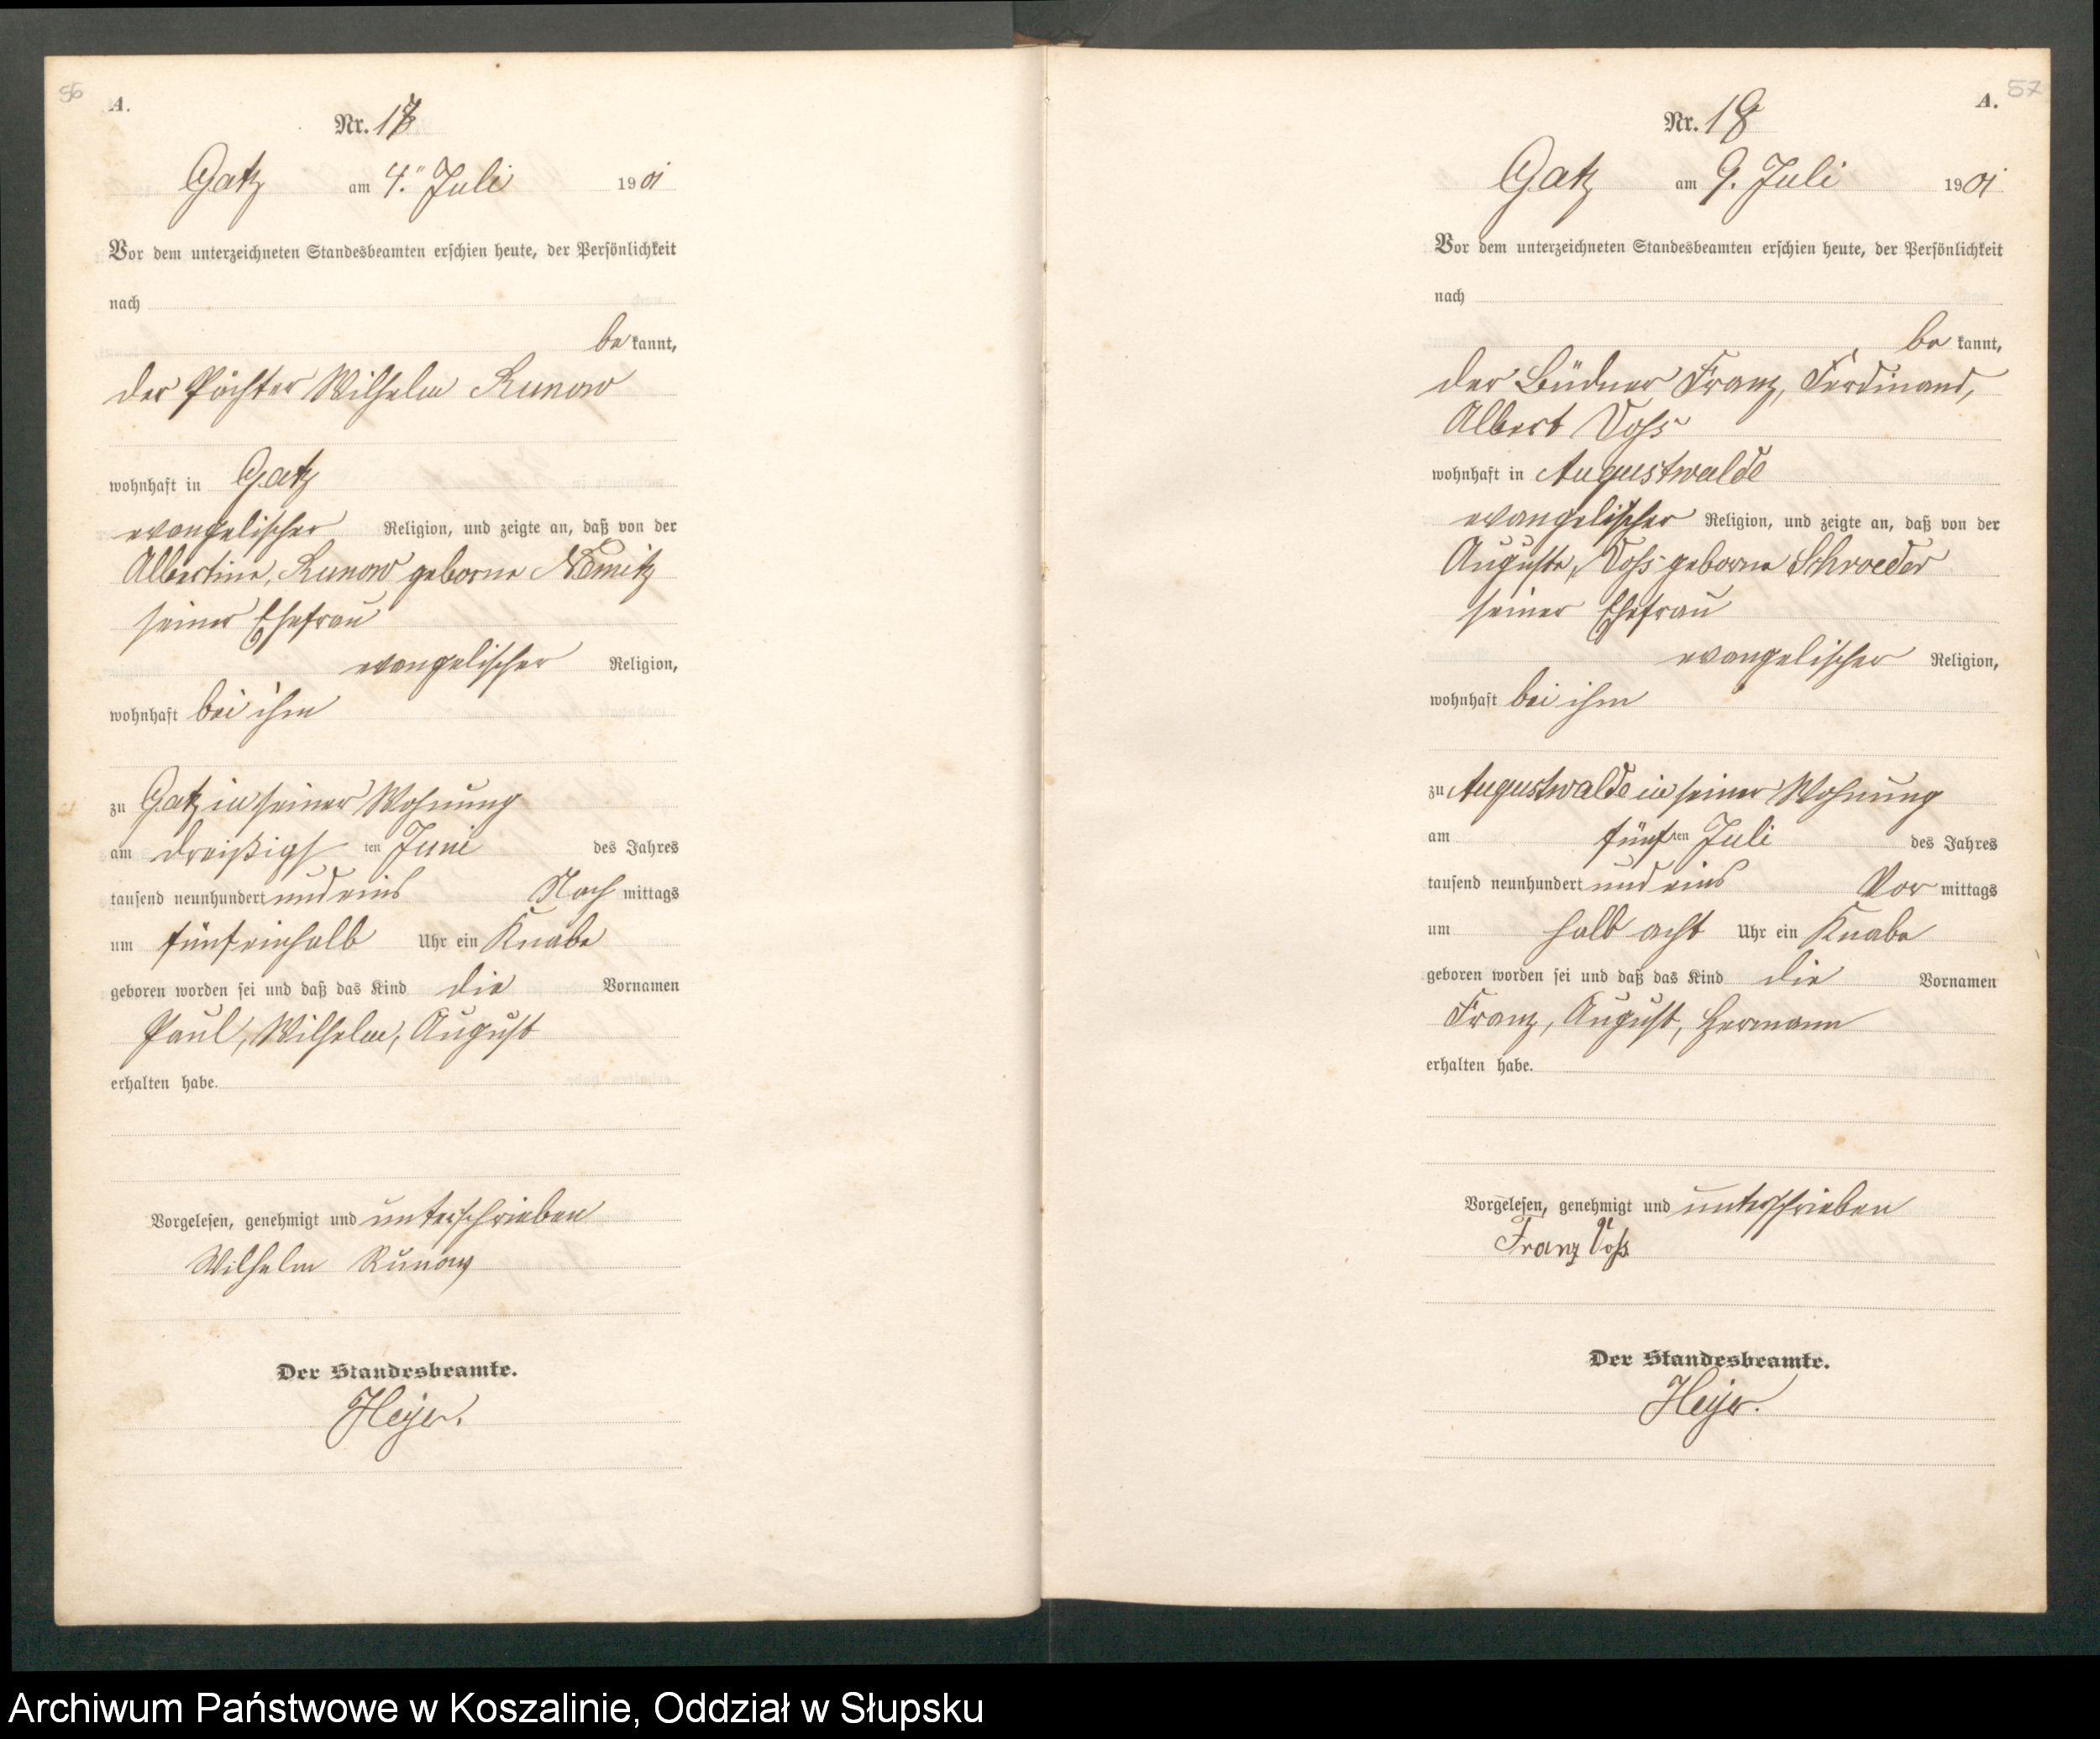 56
A.
Nr. 17
Gatz am 4. Juli 1901
Vor dem unterzeichneten Standesbeamten erschien heute, der Persönlichkeit
nach
be kannt,
der Pächter Wilhelm Runow
wohnhaft in Gatz
evangelischer Religion, und zeigte an, daß von der
Albertine, Runow geborne Nemitz
seiner Ehefrau
evangelischer Religion,
wohnhaft bei ihm
zu Gatz in seiner Wohnung
am dreißigst ten Juni des Jahres
tausend neunhundert und eins Nach mittags
um fünfeinhalb Uhr ein Knabe
geboren worden sei und daß das Kind die Vornamen
Paul, Wilhelm, August
erhalten habe.
Vorgelesen, genehmigt und unterschrieben
Wilhelm Runow
Der Standesbeamte.
Heyer.
57
A.
Nr. 18
Gatz am 9. Juli 1901
Vor dem unterzeichneten Standesbeamten erschien heute, der Persönlichkeit
nach
be kannt,
der Büdner Franz, Ferdinand,
Albert Voß
wohnhaft in Augustwalde
evangelischer Religion, und zeigte an, daß von der
Auguste, Voß geborne Schroeder
seiner Ehefrau
evangelischer Religion,
wohnhaft bei ihm
zu Augustwalde in seiner Wohnung
am fünf ten Juli des Jahres
tausend neunhundert und eins Vor mittags
um halb acht Uhr ein Knabe
geboren worden sei und daß das Kind die Vornamen
Franz, August, Hermann
erhalten habe.
Vorgelesen, genehmigt und unterschrieben
Franz Voß
Der Standesbeamte.
Heyer.
Archiwum Państwowe w Koszalinie, Oddział w Słupsku